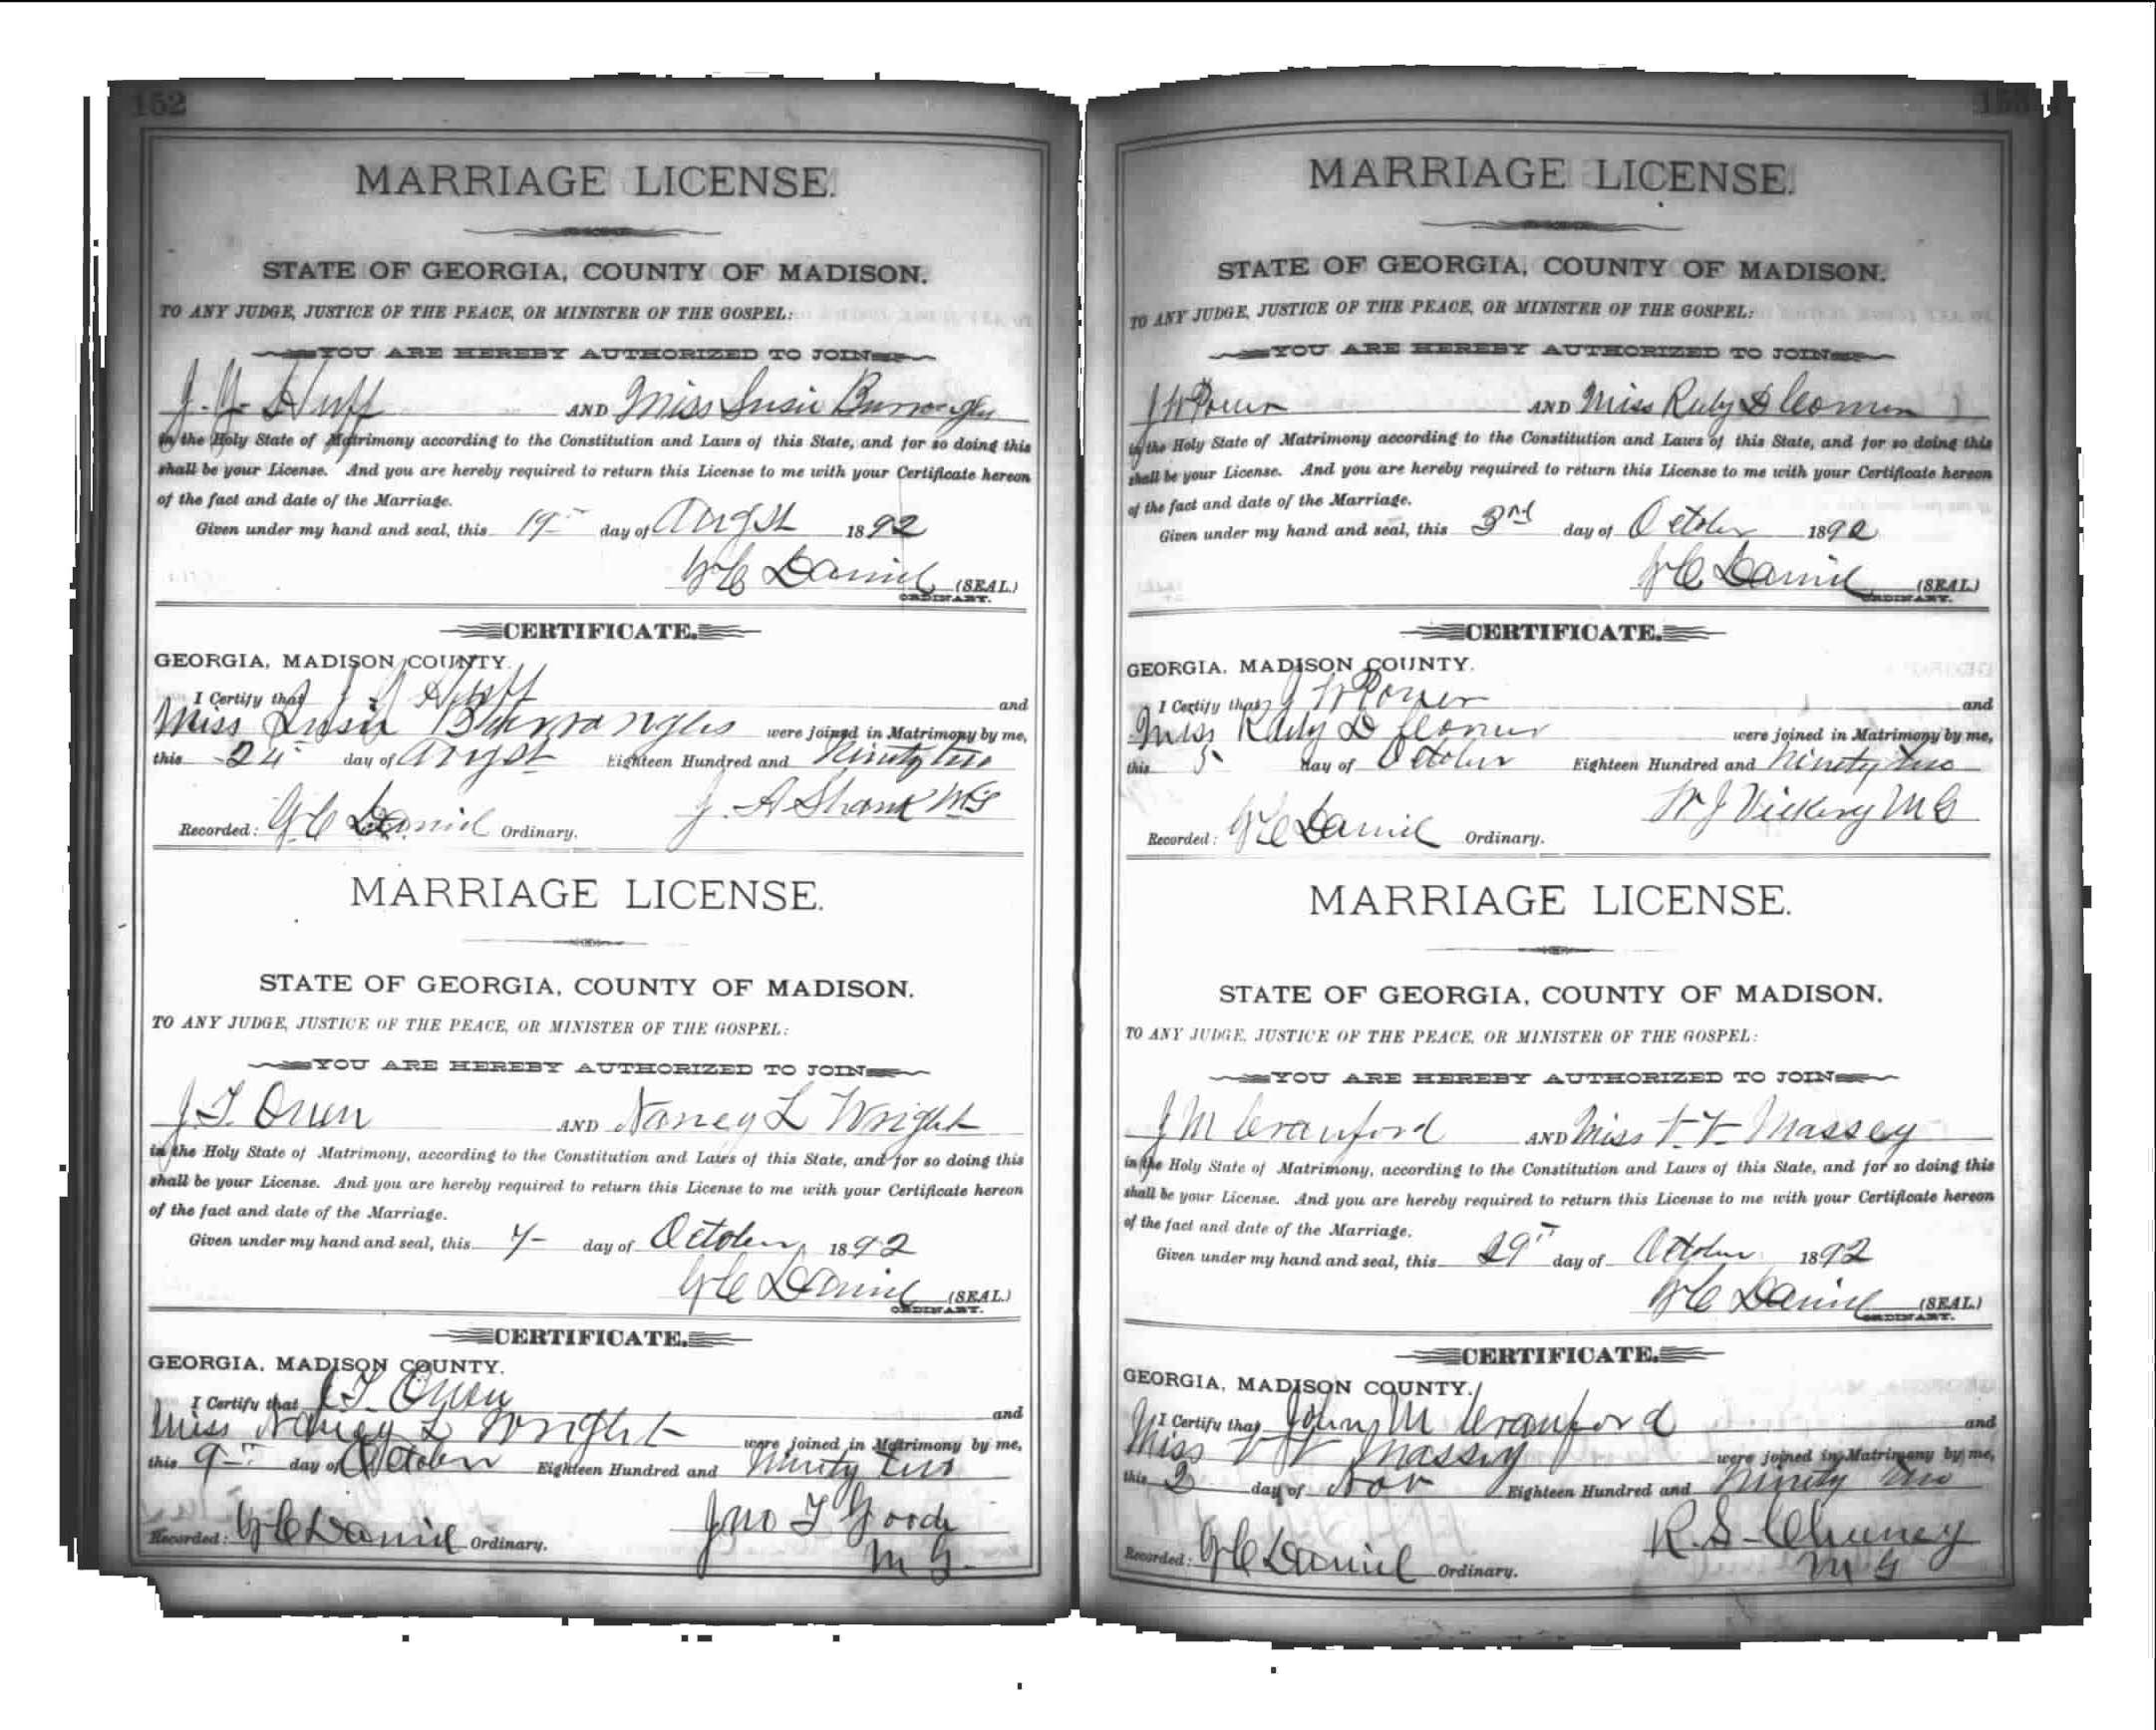 152
MARRIAGE LICENSE.
STATE OF GEORGIA, COUNTY OF MADISON.
TO ANY JUDGE, JUSTICE OF THE PEACE, OR MINISTER OF THE GOSPEL:
YOU ARE HEREBY AUTHORIZED TO JOIN
Huff AND Miss Susie Burroughs
in the Holy State of Matrimony according to the Constitution and Laws of this State, and for so doing this
shall be your License. And you are hereby required to return this License to me with your Certificate hereon
of the fact and date of the Marriage.
Given under my hand and seal, this 19 day of Augst 1892
Daniel (SEAL.)
ORDINARY.
CERTIFICATE.
GEORGIA, MADISON COUNTY.
I Certify that Huff and
Miss Susie were joined in Matrimony by me,
this 24 day of Augst Eighteen Hundred and Ninety two
Recorded: Daniel Ordinary. J. A Shank MG
MARRIAGE LICENSE.
STATE OF GEORGIA, COUNTY OF MADISON.
TO ANY JUDGE, JUSTICE OF THE PEACE, OR MINISTER OF THE GOSPEL:
YOU ARE HEREBY AUTHORIZED TO JOIN
J. T. Owen AND Nancy L Wright
in the Holy State of Matrimony, according to the Constitution and Laws of this State, and for so doing this
shall be your License. And you are hereby required to return this License to me with your Certificate hereon
of the fact and date of the Marriage.
Given under my hand and seal, this day of October 1892
Daniel (SEAL.)
ORDINARY.
CERTIFICATE.
GEORGIA, MADISON COUNTY.
I Certify that J. T. Owen and
Miss Nancy L Wright were joined in Matrimony by me,
this 9th day of October Eighteen Hundred and Ninety two
Recorded: Daniel Ordinary. Jno T Goode
M G.
MARRIAGE LICENSE.
STATE OF GEORGIA, COUNTY OF MADISON.
TO ANY JUDGE, JUSTICE OF THE PEACE, OR MINISTER OF THE GOSPEL:
YOU ARE HEREBY AUTHORIZED TO JOIN
J W Power AND Miss Ruby D
in the Holy State of Matrimony according to the Constitution and Laws of this State, and for so doing this
shall be your License. And you are hereby required to return this License to me with your Certificate hereon
of the fact and date of the Marriage.
Given under my hand and seal, this 3rd day of October 1892
Daniel (SEAL.)
ORDINARY.
CERTIFICATE.
GEORGIA, MADISON COUNTY.
I Certify that J W Power and
Miss Ruby D were joined in Matrimony by me,
this 5 day of October Eighteen Hundred and Ninety two
Recorded: Daniel Ordinary. W J Vickery M G
MARRIAGE LICENSE.
STATE OF GEORGIA, COUNTY OF MADISON.
TO ANY JUDGE, JUSTICE OF THE PEACE, OR MINISTER OF THE GOSPEL:
YOU ARE HEREBY AUTHORIZED TO JOIN
J M Crawford AND Miss Massey
in the Holy State of Matrimony, according to the Constitution and Laws of this State, and for so doing this
shall be your License. And you are hereby required to return this License to me with your Certificate hereon
of the fact and date of the Marriage.
Given under my hand and seal, this 29th day of October 1892
Daniel (SEAL.)
ORDINARY.
CERTIFICATE.
GEORGIA, MADISON COUNTY.
I Certify that John M Crawford and
Miss Massey were joined in Matrimony by me,
this 2 day of Nov Eighteen Hundred and Ninety two
Recorded: Daniel Ordinary. R. S. Cheney
M G